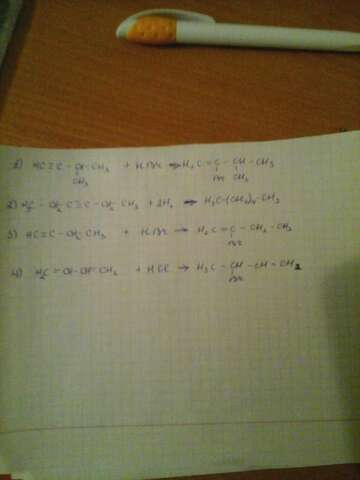 1) HC≡C-CH-CH₃ + HBr → H₂C=C-CH-CH₃
CH₃ Br CH₃
2) H₃C-CH₂-C≡C-CH₂-CH₃ + 2H₂ → H₃C-(CH₂)₄-CH₃
3) HC≡C-CH₂-CH₃ + HBr → H₂C=C-CH₂-CH₃
Br
4) H₂C=CH-CH=CH₂ + HBr → H₃C-CH-CH=CH₂
Br